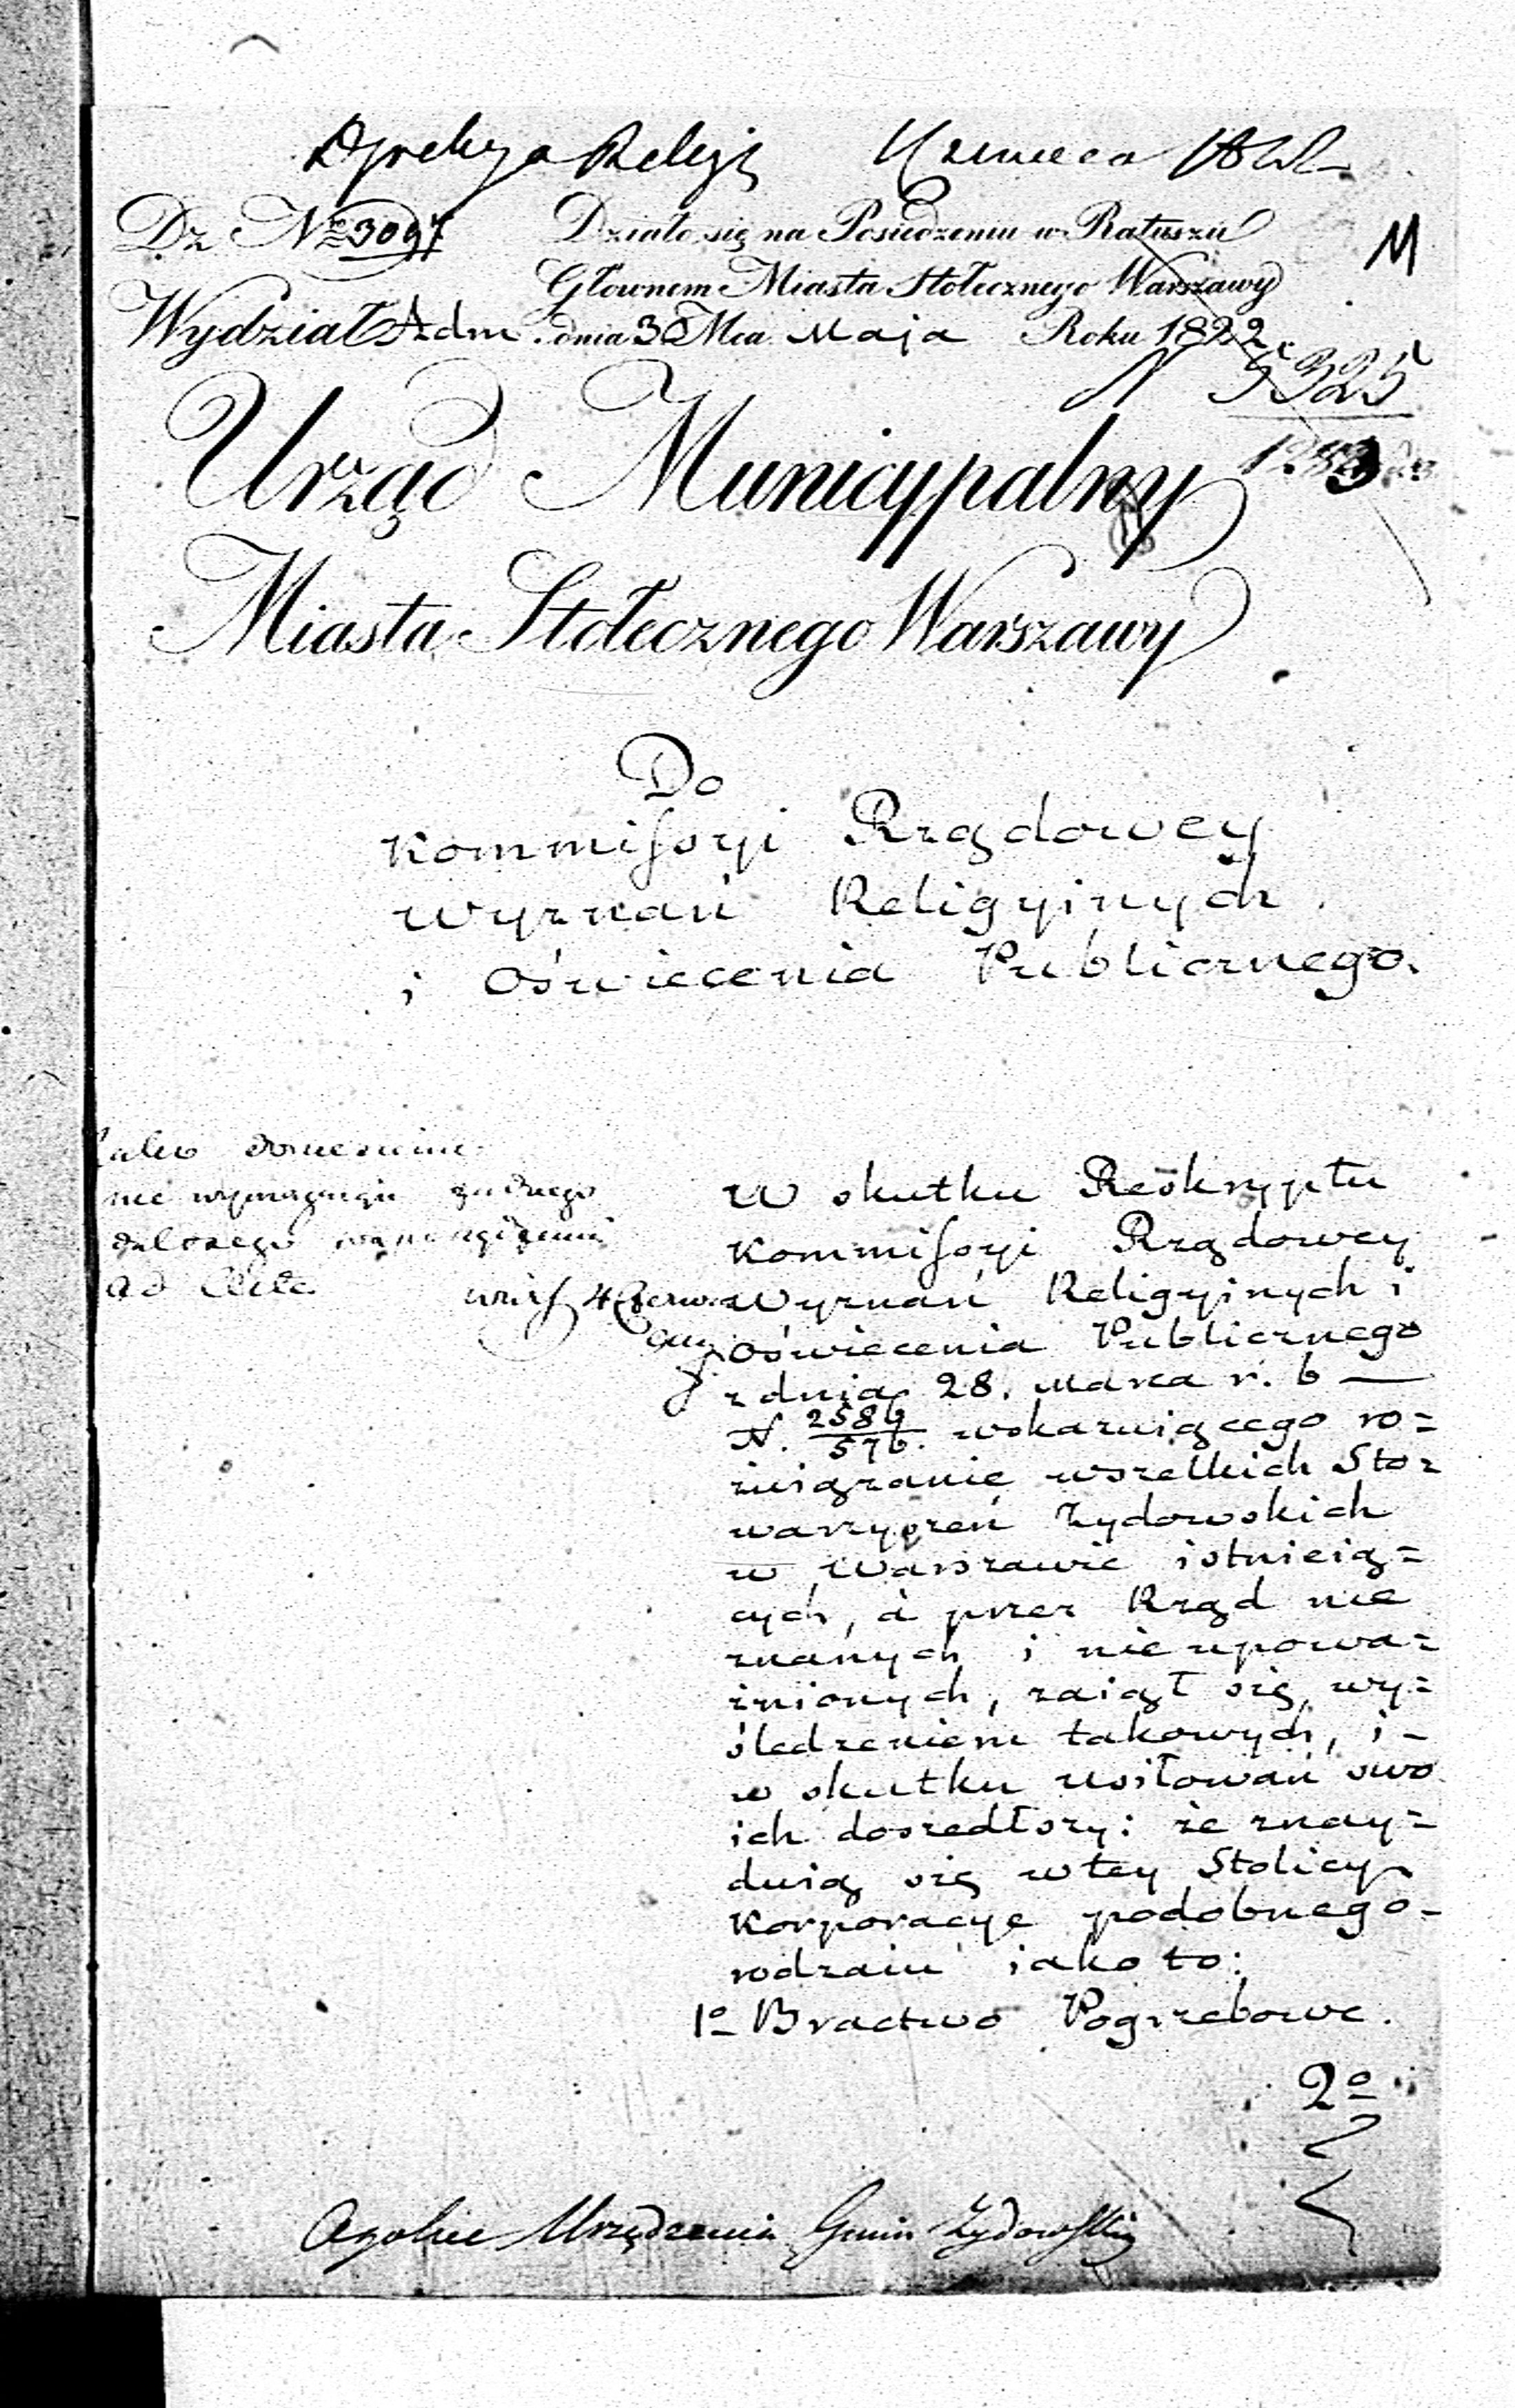 Dyrekcya Religij Czerwca 1822
Dz Nr 3097 Działo się na Posiedzeniu w Ratuszu M
Głownem Miasta Stołecznego Warszawy
Wydział Adm. dnia 30 Mca Maja Roku 1822
N 5325
Urząd Municypalny
Miasta Stołecznego Warszawy
Do
Kommissyi Rządowey
Wyznań Religyinych
i Oświecenia Publicznego.
doniesienie
nie wymagaiące żadnego
dalszego rozporządzenia
ad Acta 4 Czerwca
W skutku Reskryptu
Kommissyi Rządowey
Wyznań Religyinych i
Oświecenia Publicznego
z dnia 28. Marca r. b —
N. 2586/576. wskazuiącego ro=
związanie wszelkich Sto=
warzyszeń Żydowskich
w Warszawie istnieią=
cych, a przez Rząd nie
znanych i nie upowa=
żnionych, zaiął się, wy=
śledzeniem takowych, i -
w skutku usiłowań swo
ich doszedłszy: że znay=
duią się w tey Stolicy
Korporacye podobnego-
rodzaiu iako to:
1o Bractwo Pogrzebowe.
2o
Ogolne Urządzenia Gmin Żydowskich